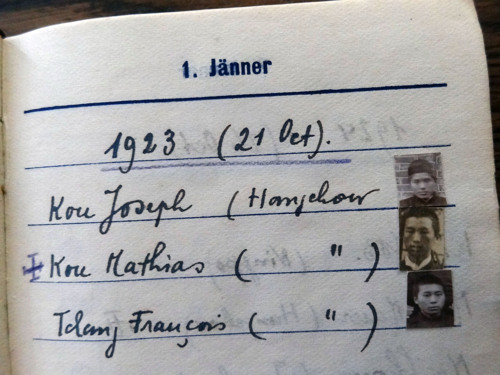 1. Jänner
1923 (21 Oct).
Kou Joseph (Hangchow
Kou Mathias ( " )
Tdang François ( " )